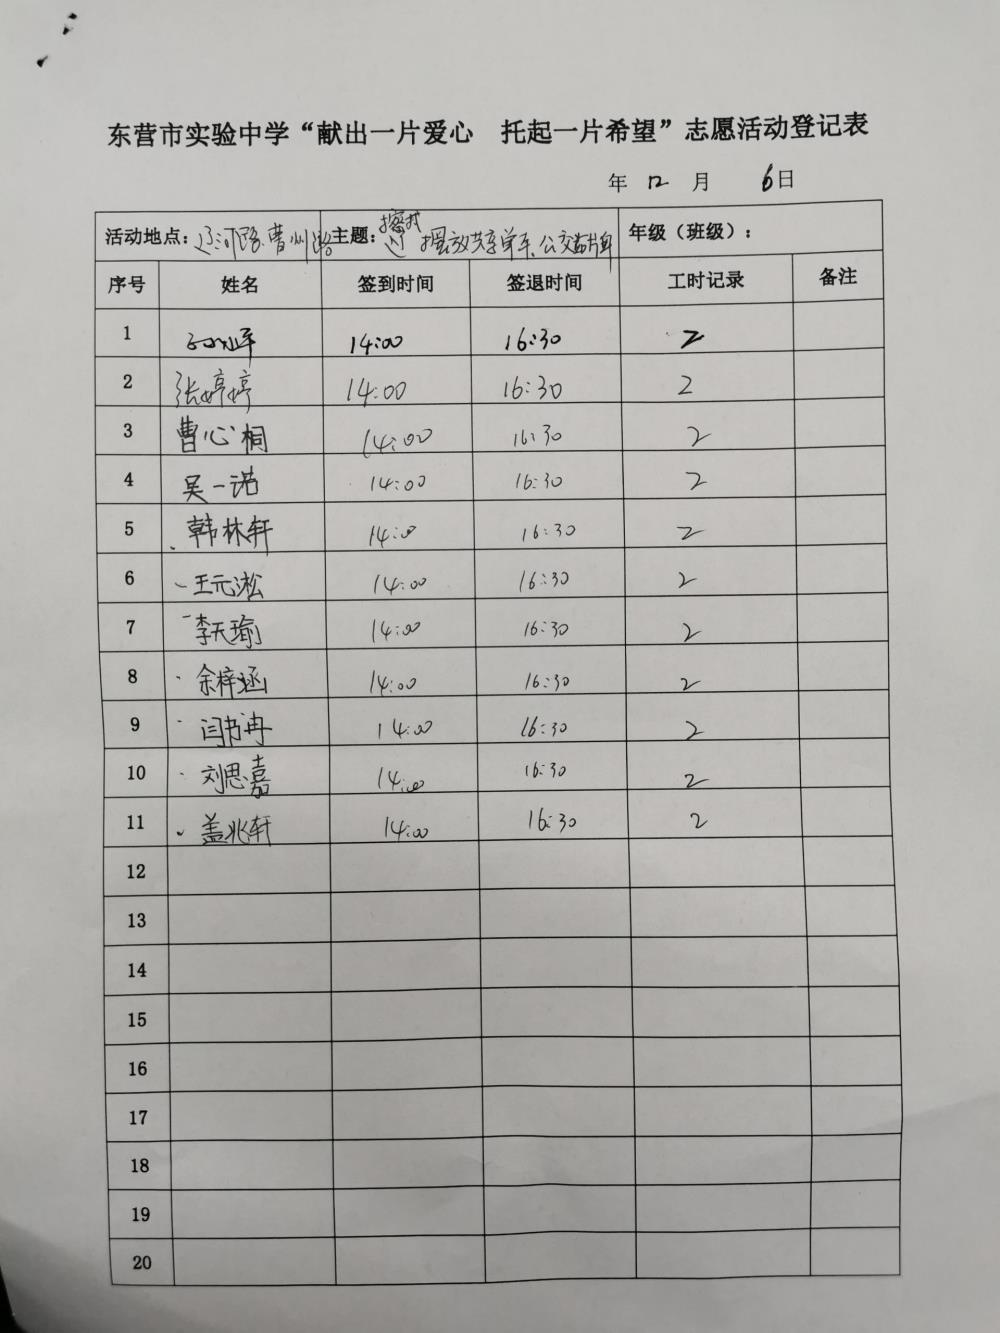 东营市实验中学“献出一片爱心 托起一片希望”志愿活动登记表
年 12 月 6日
活动地点：辽河路.曹州路 主题： 摆放共享单车.公交站牌 年级（班级）：
序号 姓名 签到时间 签退时间 工时记录 备注
1 14:00 16:30 2
2 张婷婷 14:00 16:30 2
3 曹心桐 14:00 16:30 2
4 吴一诺 14:00 16:30 2
5 韩林轩 14:00 16:30 2
6 王元淞 14:00 16:30 2
7 李天瑜 14:00 16:30 2
8 余梓涵 14:00 16:30 2
9 闫书冉 14:00 16:30 2
10 刘思嘉 14:00 16:30 2
11 盖兆轩 14:00 16:30 2
12
13
14
15
16
17
18
19
20